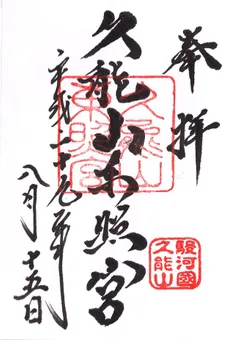 奉拝
駿河國
久能山
久能山東照宮
久能山
東照宮
平成二十九年
八月十五日